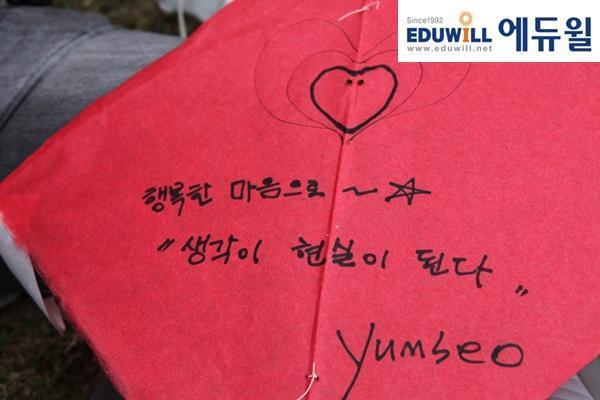 Since1992
EDUWILL 에듀윌
www.eduwill.net
행복한 마음으로 ~ ☆
"생각이 현실이 된다"
Yumseo